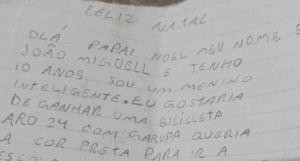 FELIZ NATAL
OLÁ PAPAI NOEL MEU NOME E
JOÃO MIGUELL E TENHO
10 ANOS SOU UM MENINO
INTELIGENTE. EU GOSTARIA
DE GANHAR UMA BILICLETA
ARO 24 COM GARUPA QUERIA
A COR PRETA PARA IR A
ESCOLA